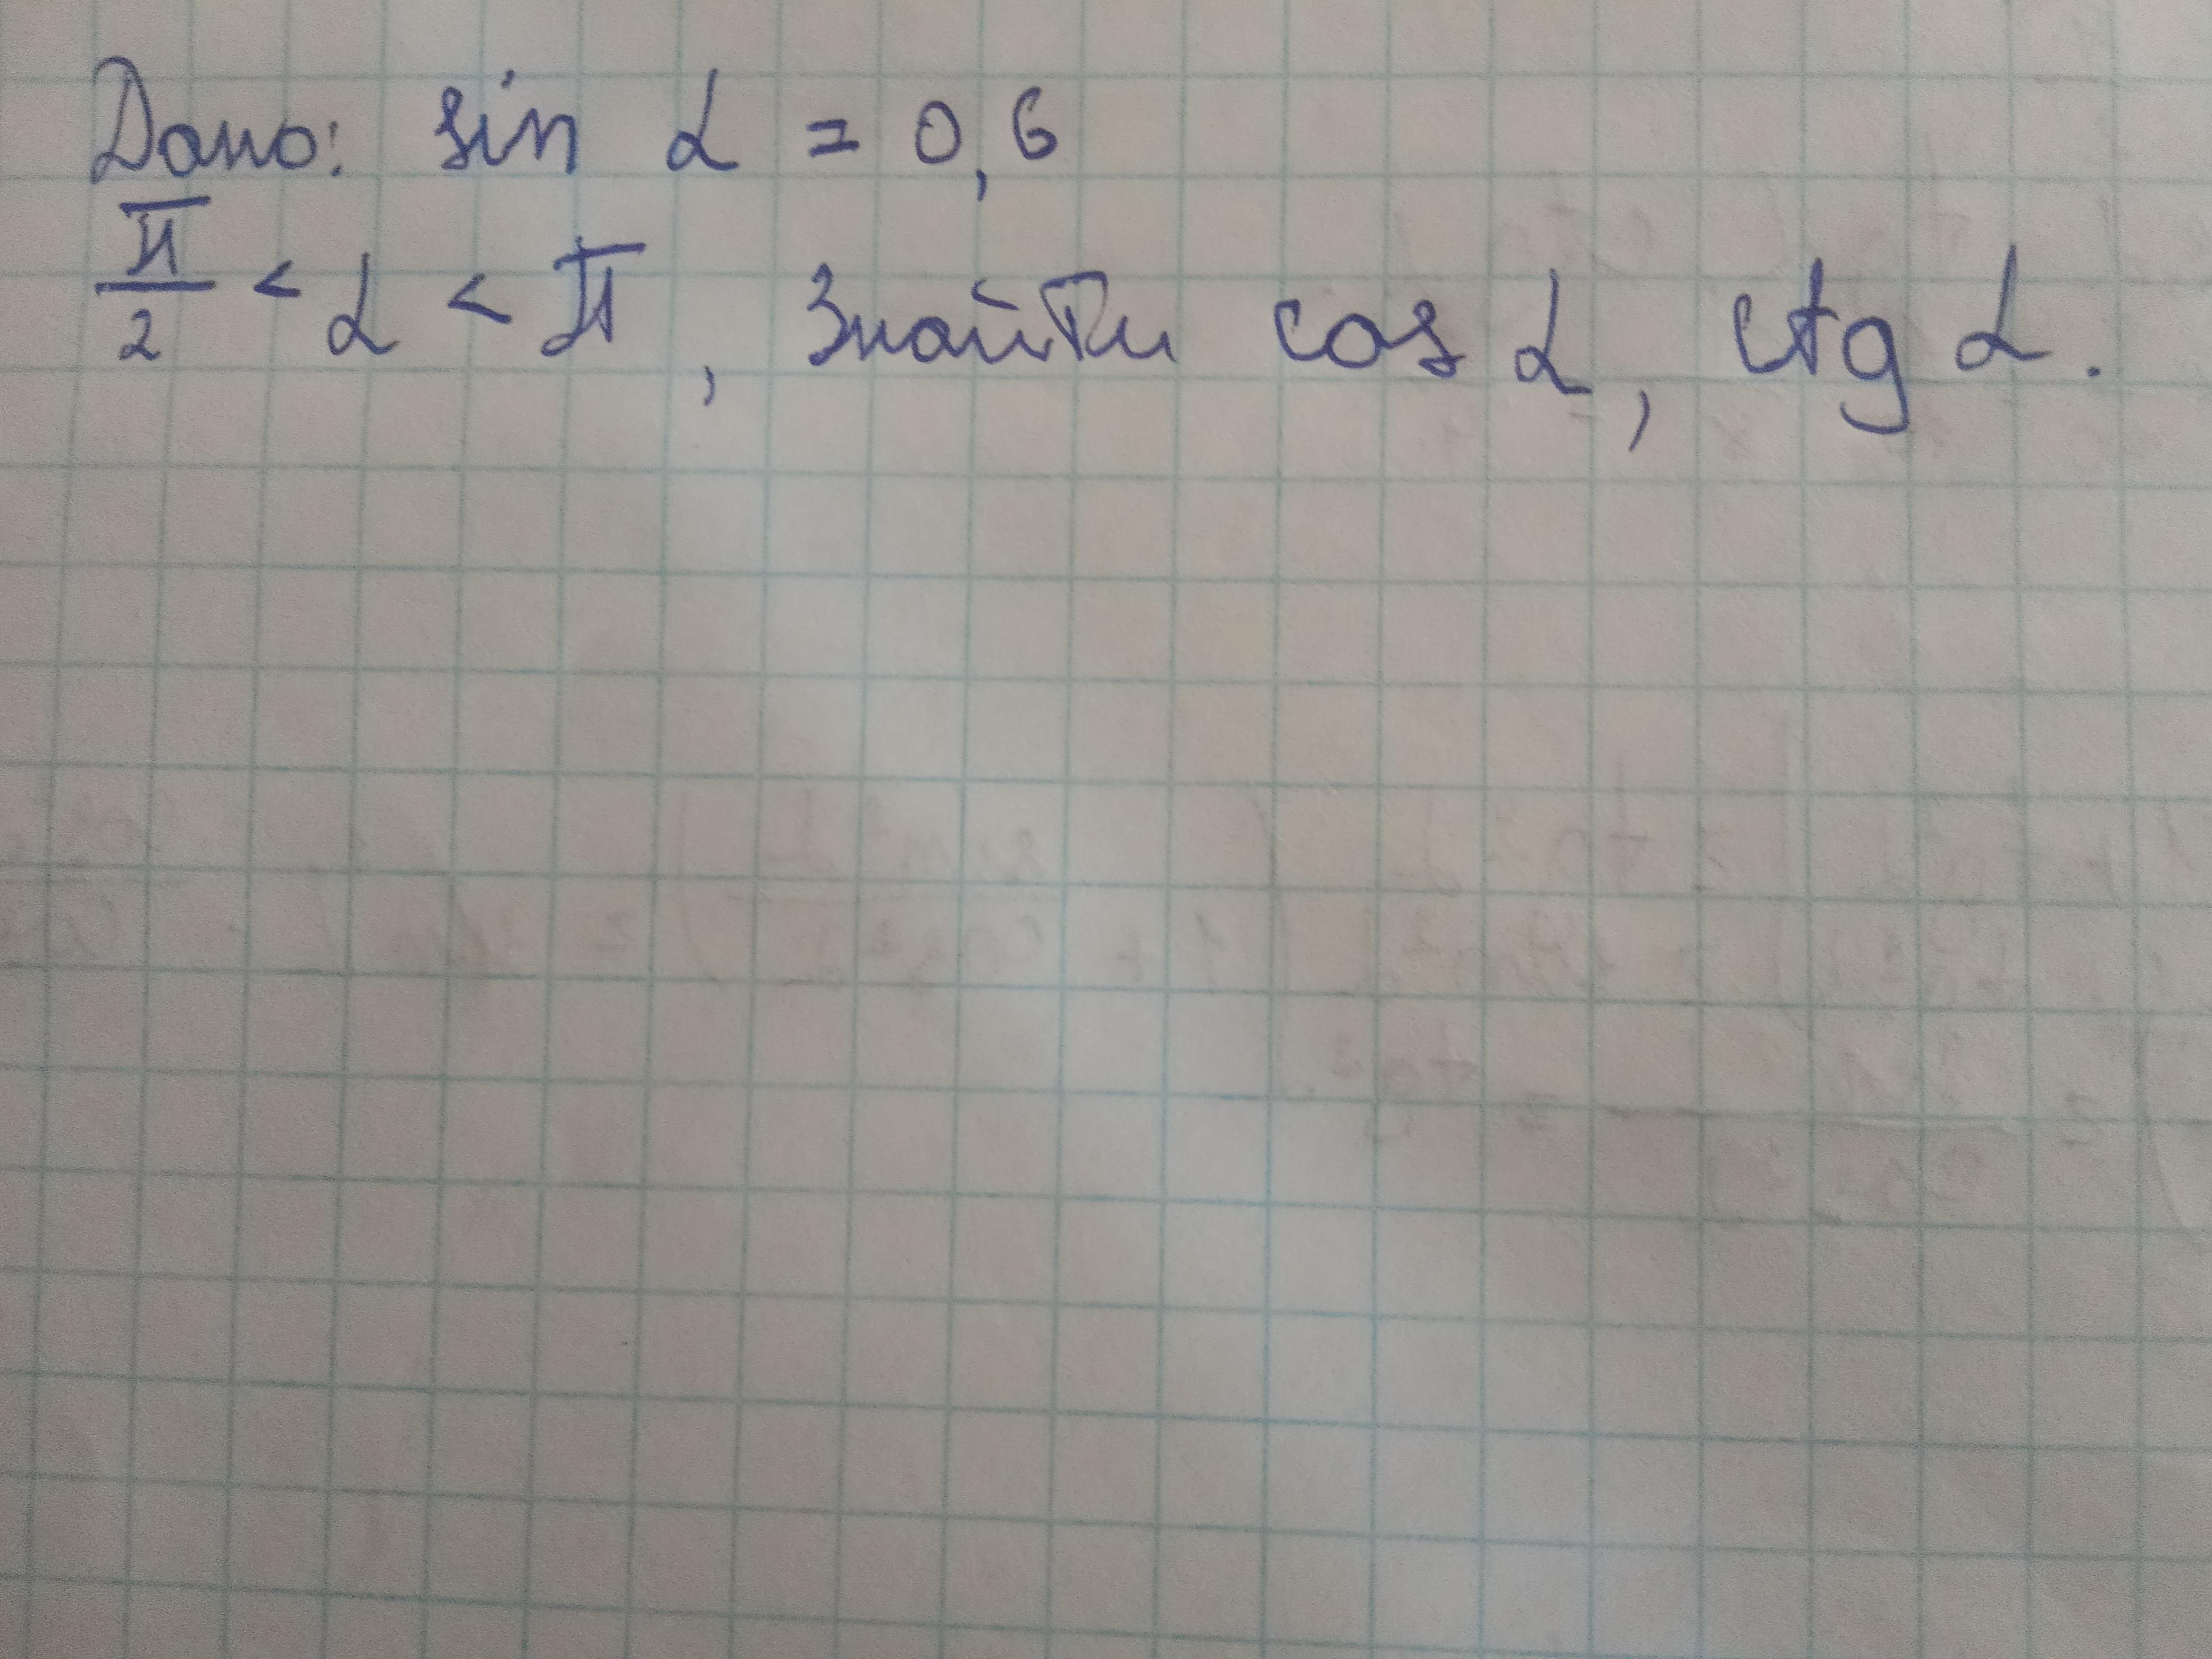 Дано: sin α = 0,6
π/2 < α < π, Знайти cos α, ctg α.